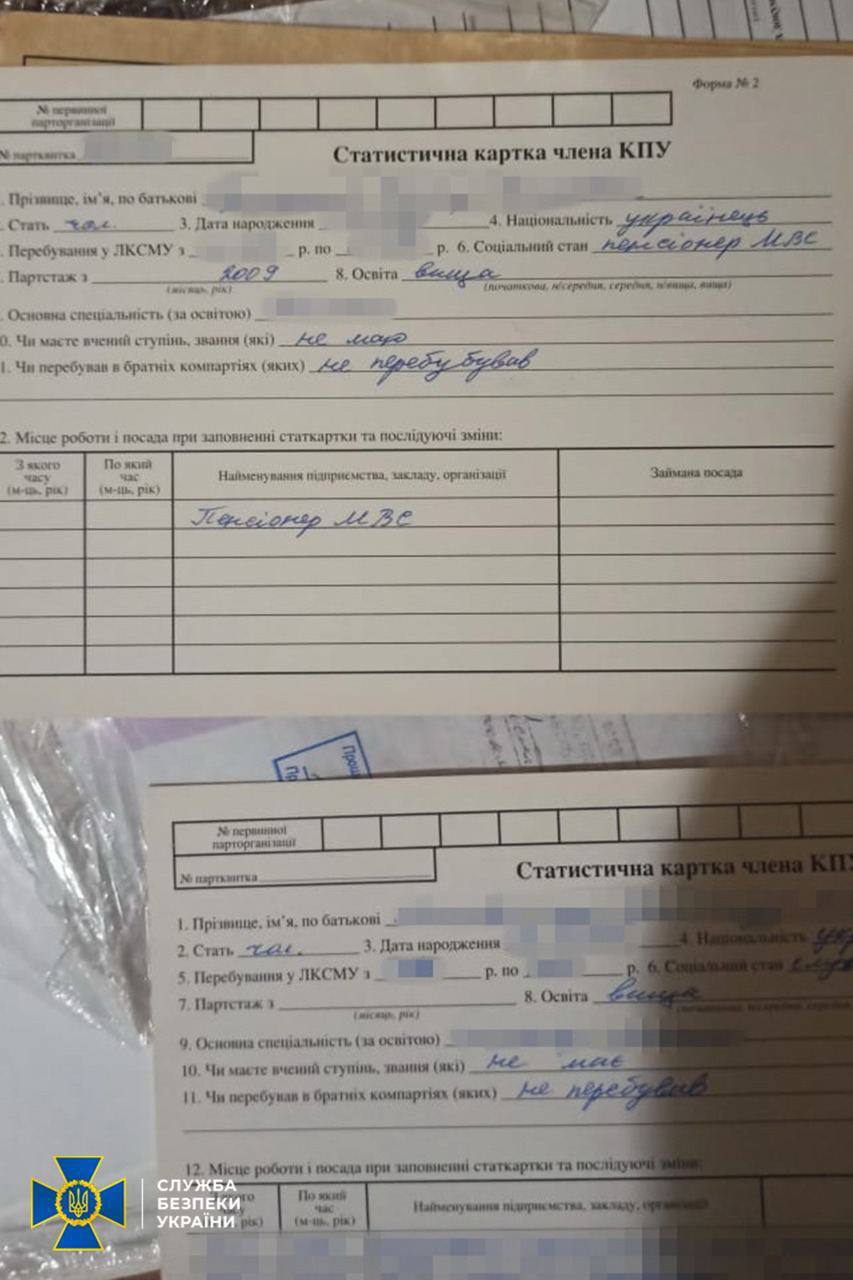 Форма № 2
№ первинної парторганізації
№ партквитка
Статистична картка члена КПУ
. Прізвище, ім'я, по батькові
. Стать чол. 3. Дата народження 4. Національність українець
. Перебування у ЛКСМУ з р. по р. 6. Соціальний стан пенсіонер МВС
. Партстаж з 2009 8. Освіта вища
(місяць, рік) (початкова, н/середня, середня, н/вища, вища)
. Основна спеціальність (за освітою)
0. Чи маєте вчений ступінь, звання (які) не маю
1. Чи перебував в братніх компартіях (яких) не перебубував
2. Місце роботи і посада при заповненні статкартки та послідуючі зміни:
З якого часу (м-ць, рік) По який час (м-ць, рік) Найменування підприємства, закладу, організації Займана посада
Пенсіонер МВС
Прош
№ первинної парторганізації
№ партквитка
Статистична картка члена КПУ
1. Прізвище, ім'я, по батькові
2. Стать чол. 3. Дата народження 4. Національність укр
5. Перебування у ЛКСМУ з р. по р. 6. Соціальний стан служ
7. Партстаж з 8. Освіта вища
(місяць, рік)
9. Основна спеціальність (за освітою)
10. Чи маєте вчений ступінь, звання (які) не має
11. Чи перебував в братніх компартіях (яких) не перебував
12. Місце роботи і посада при заповненні статкартки та послідуючі зміни:
рік) По який час (м-ць, рік) Найменування підприємства, закладу, організації
СЛУЖБА
БЕЗПЕКИ
УКРАЇНИ